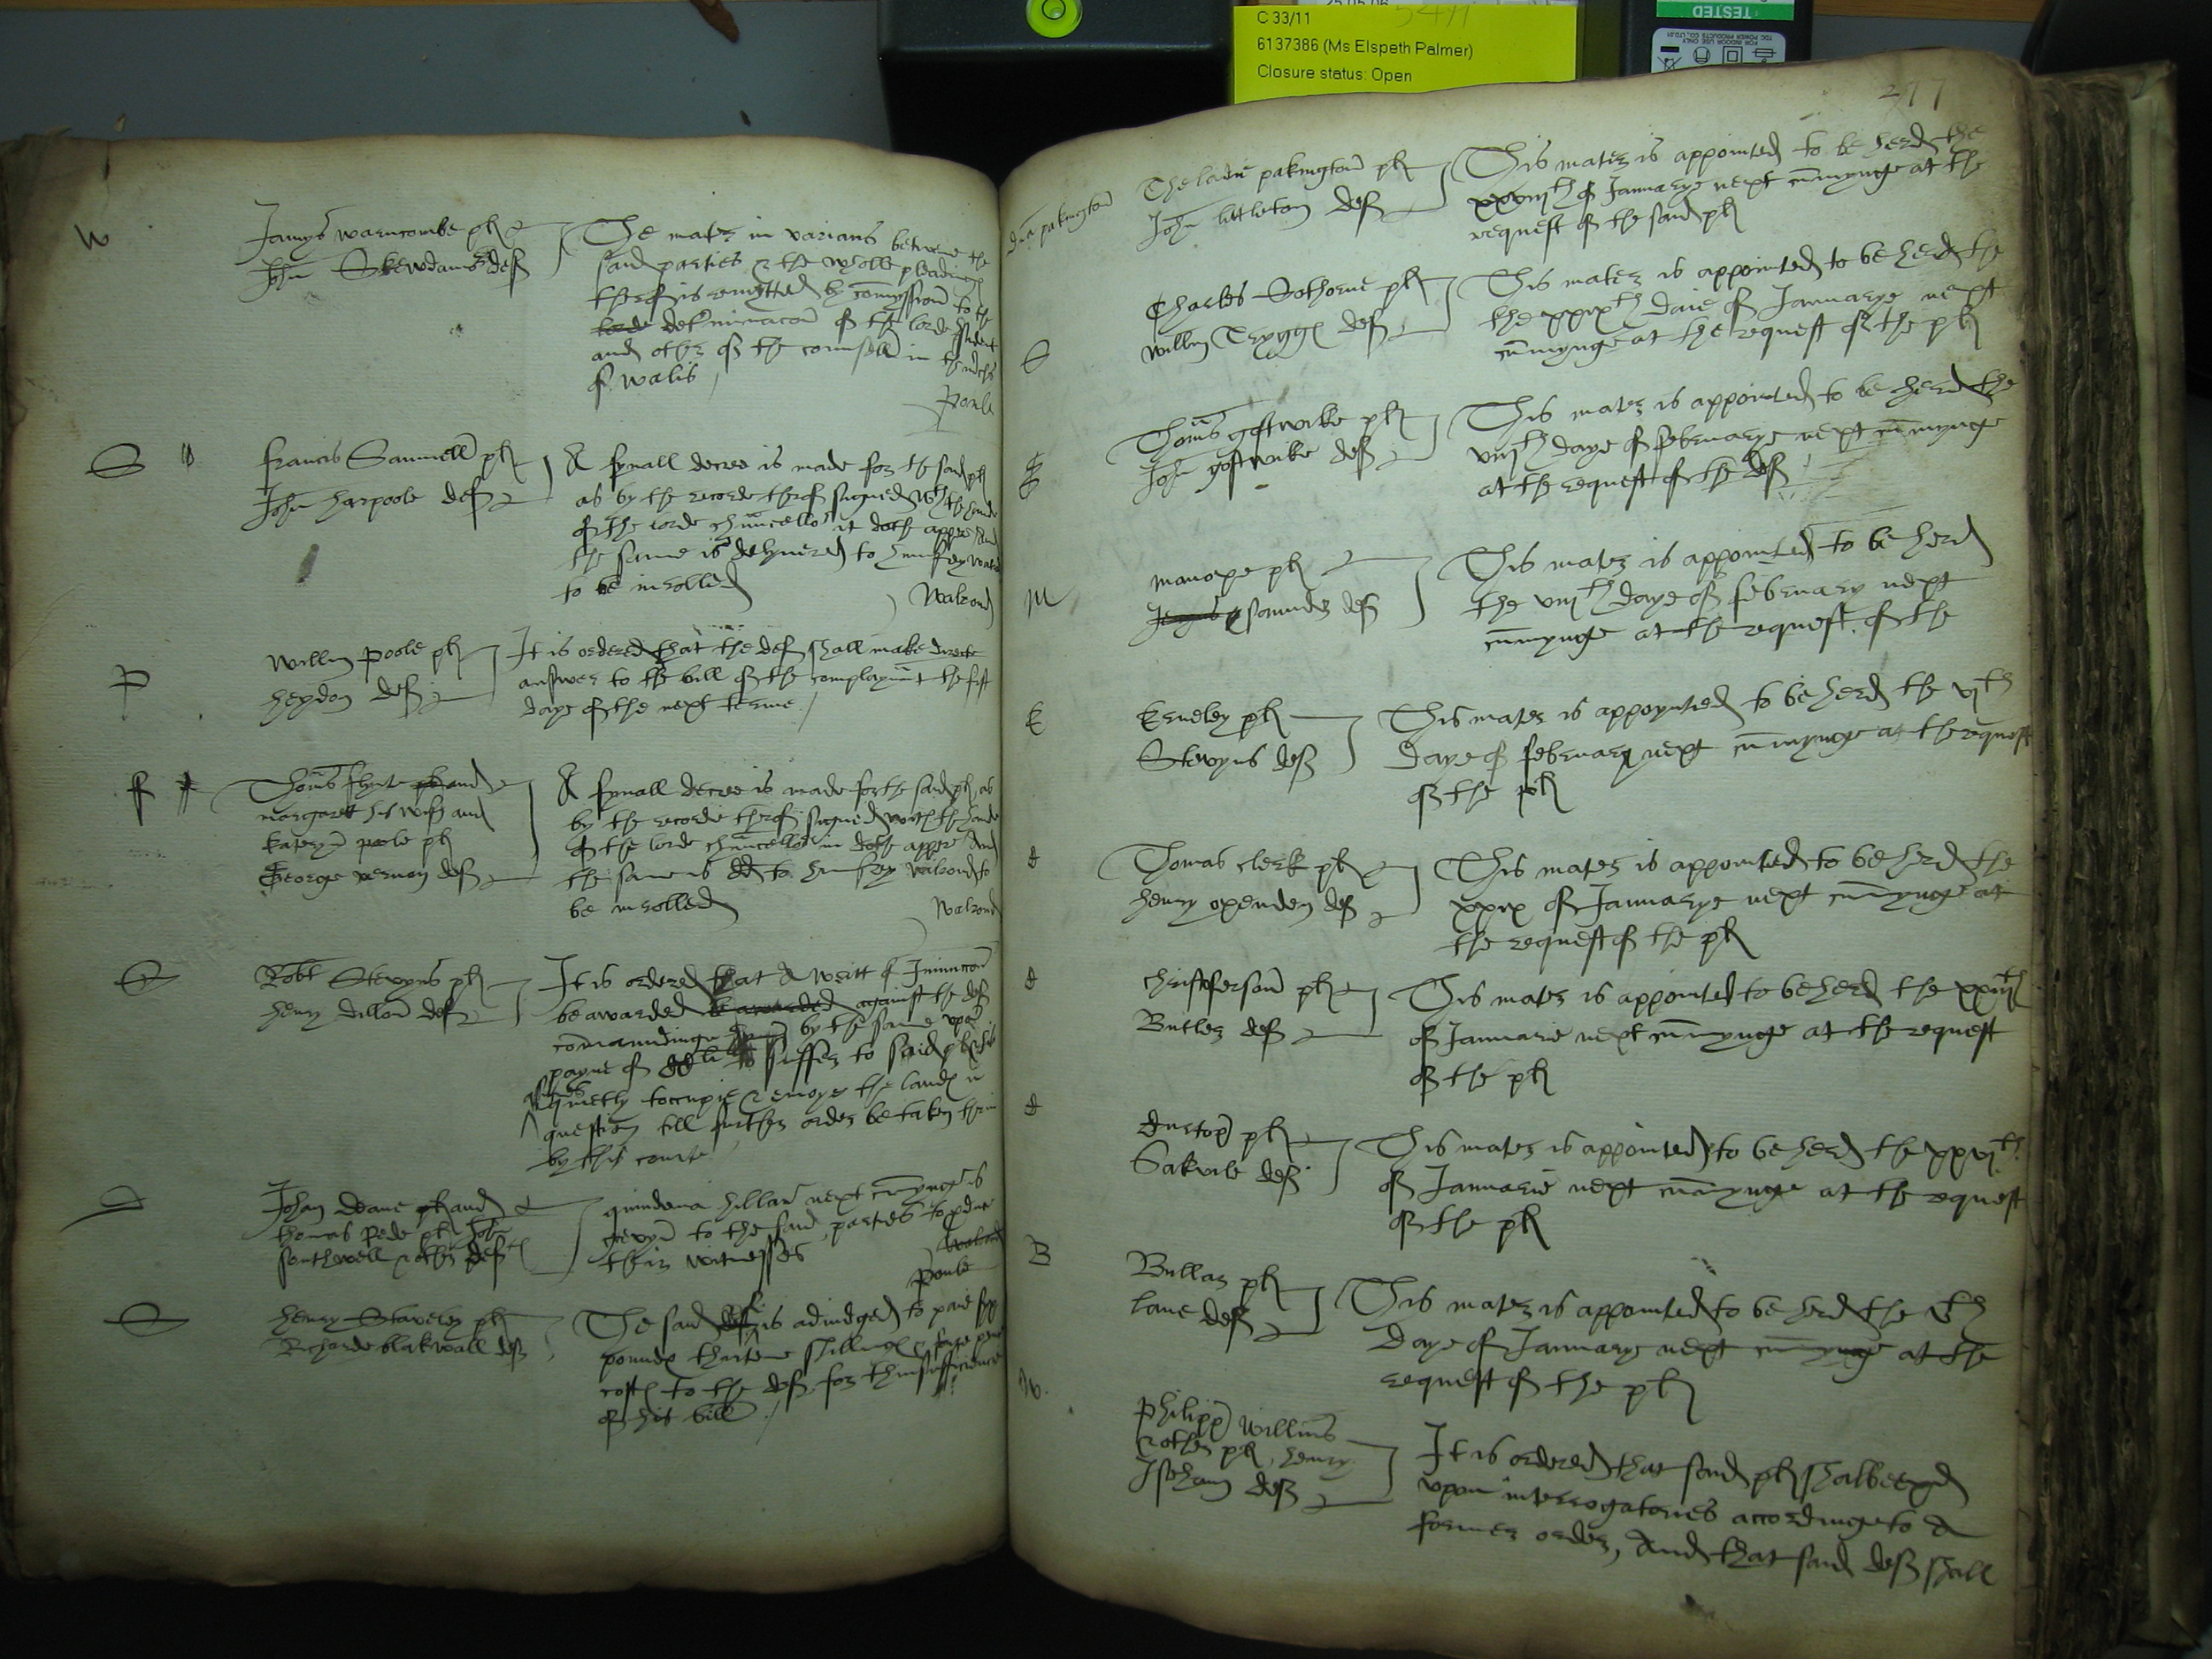 C 33/11
6137386 (Ms Elspeth Palmer)
Closure status: Open
TESTED
W
Jamys warncombe pl
John Skewdamor def
The mater in varians betwene the
said parties & the wholle pleading
therof is remytted by comyssion to the
lorde determinacon of the lorde president
and other of the counsell in the mches
of walis
Poule
S
Francis Samuell pl
John harpoole def
A fynall decree is made for the said pl
as by the recorde therof signed wth the hande
of the lorde chauncellor it doth appere And
the same is delyuered to humfrey walrond
to be inrolled
Walrond
P
Willm poole pl
heydon def
It is ordered that the def shall make directe
answer to the bill of the complaynnt the first
daye of the next terme
f
Thoms flynte pl and
margarett his wyff and
kateryn poole pl
George vernon def
A fynall decree is made for the said pl as
by the recorde therof signed with the hande
of the lorde chauncellor it doth appere And
the same is dd to humfrey walrond to
be inrolled
Walrond
S
Robt Stevyns pl
henry dillon def
It is ordered that A writt of Iniunccon
be awarded be awarded against the def
comaundinge by the same vpon
payne of to suffer to said pl
quietly toccupie & enioye the landes in
question till further order be taken therin
by this courte
D
Johan Deane pl and
thomas Rede pl John
Southwell & other def
quindena hillarii next cmynge is
gevyn to the said parties to pduce
their witnesses
Walrond
Poule
S
henry Staveley pl
Richarde blakwall def
The said def is adiudged to paie syx
poundes thirtene shillinges & foure pence
costes to the def for thinsufficience
of his bill
277
dna pakington
The ladie pakington pl
John littleton def
This mater is appointed to be herd the
xxviijth of Januarye next cmynge at the
request of the said pl
S
Charles Sothorne pl
Willm Trygges def
This mater is appointed to be herd the
the xxixth daie of Januarye next
cmynge at the request of the pl
G
Thoms gostwike pl
John gostwike def
This mater is appointed to be herd the
viijth daye of Februarye next cmynge
at the request of the def
M
manoxe pl
Saunder def
This mater is appointed to be herd
the viijth daye of February next
cmynge at the request of the
E
Erneley pl
Stevyns def
This mater is appoynted to be herd the vjth
daye of February next cmynge at the request
of the pl
Thomas clerk pl
henry oxenden def
This mater is appointed to be herd the
xxix of Januarye next cmynge at
the request of the pl
Christoferson pl
Butler def
This mater is appointed to be herd the xxiijth
of Januarie next cmynge at the request
of the pl
Sakvile def
This mater is appointed to be herd the xxvjth
of Januarie next cmynge at the request
of the pl
B
Buller pl
lane def
This mater is appointed to be herd the
daye of Januarye next cmynge at the
request of the pl
W
Philipp Willms
& other pl, henry
Iseham def
It is ordered that said pl shalbe exd
vpon interrogatories accordinge to A
former order, And that said def shall